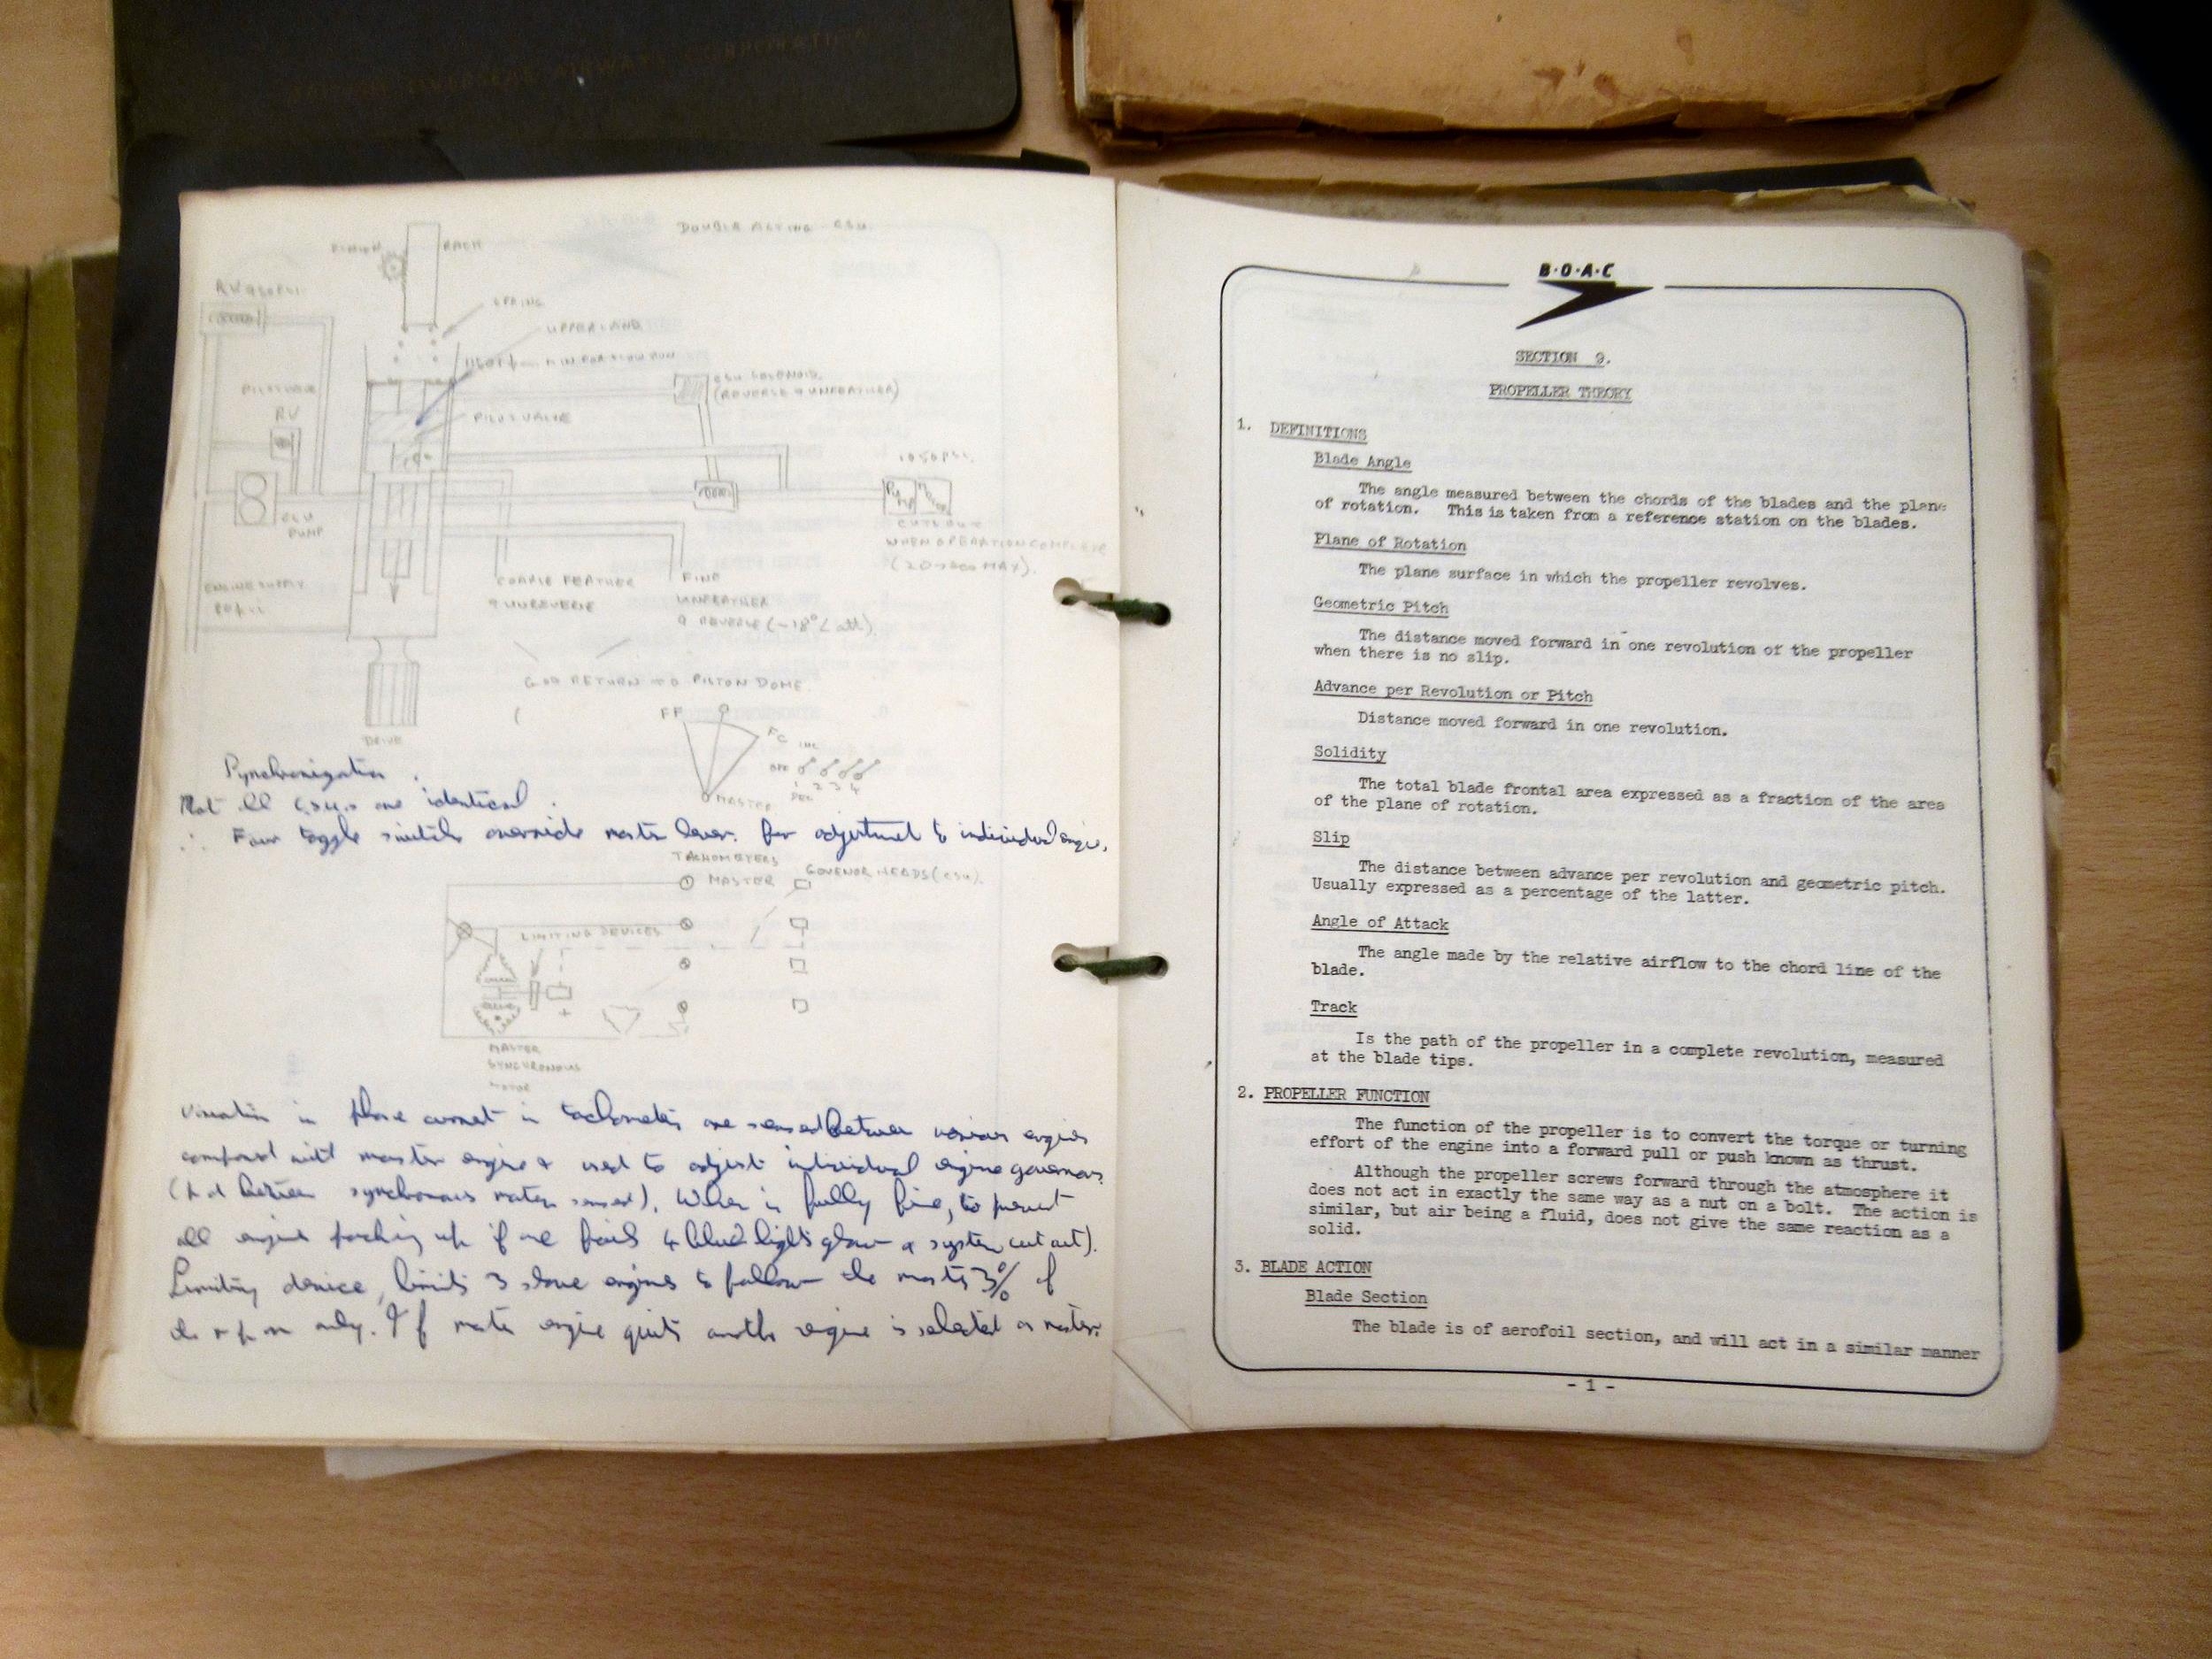 BRITISH OVERSEAS AIRWAYS CORPORATION
DOUBLE ACTING CSU.
PINION
RACH
SPRING
UPPER LAND
PILOT VALVE
CSU SOLENOID.
(REVERSE & UNFEATHER)
RV
CSU
PUMP
CUT OUT
WHEN OPERATION COMPLETE
(20 SEC MAX).
ENGINE SUPPLY
COARSE FEATHER
& UNREVERSE
FINE
UNFEATHER
& REVERSE (-18°
RETURN TO PISTON DOME.
DRIVE
FF
FC
MASTER
Synchronization.
Not all CSU.s are identical.
∴ Four toggle switch override master lever. for adjustment to individual engine.
TACHOMETERS
MASTER
GOVENOR HEADS (CSU).
LIMITING DEVICES
MASTER
SYNCHRONOUS
MOTOR
Variation in phase current in tachometers are sensed between various engines
compared with master engine & used to adjust individual engine governors.
between synchronous motor sensed). When in fully fine, to prevent
all engine if one fails 4 blue lights glow & system cut out).
Limiting device, limits 3 slave engines to follow the master 3% of
only. If master engine quits another engine is selected as master.
B·O·A·C
SECTION 9.
PROPELLER THEORY
1. DEFINITIONS
Blade Angle
The angle measured between the chords of the blades and the plane
of rotation. This is taken from a reference station on the blades.
Plane of Rotation
The plane surface in which the propeller revolves.
Geometric Pitch
The distance moved forward in one revolution of the propeller
when there is no slip.
Advance per Revolution or Pitch
Distance moved forward in one revolution.
Solidity
The total blade frontal area expressed as a fraction of the area
of the plane of rotation.
Slip
The distance between advance per revolution and geometric pitch.
Usually expressed as a percentage of the latter.
Angle of Attack
The angle made by the relative airflow to the chord line of the
blade.
Track
Is the path of the propeller in a complete revolution, measured
at the blade tips.
2. PROPELLER FUNCTION
The function of the propeller is to convert the torque or turning
effort of the engine into a forward pull or push known as thrust.
Although the propeller screws forward through the atmosphere it
does not act in exactly the same way as a nut on a bolt. The action is
similar, but air being a fluid, does not give the same reaction as a
solid.
3. BLADE ACTION
Blade Section
The blade is of aerofoil section, and will act in a similar manner
- 1 -